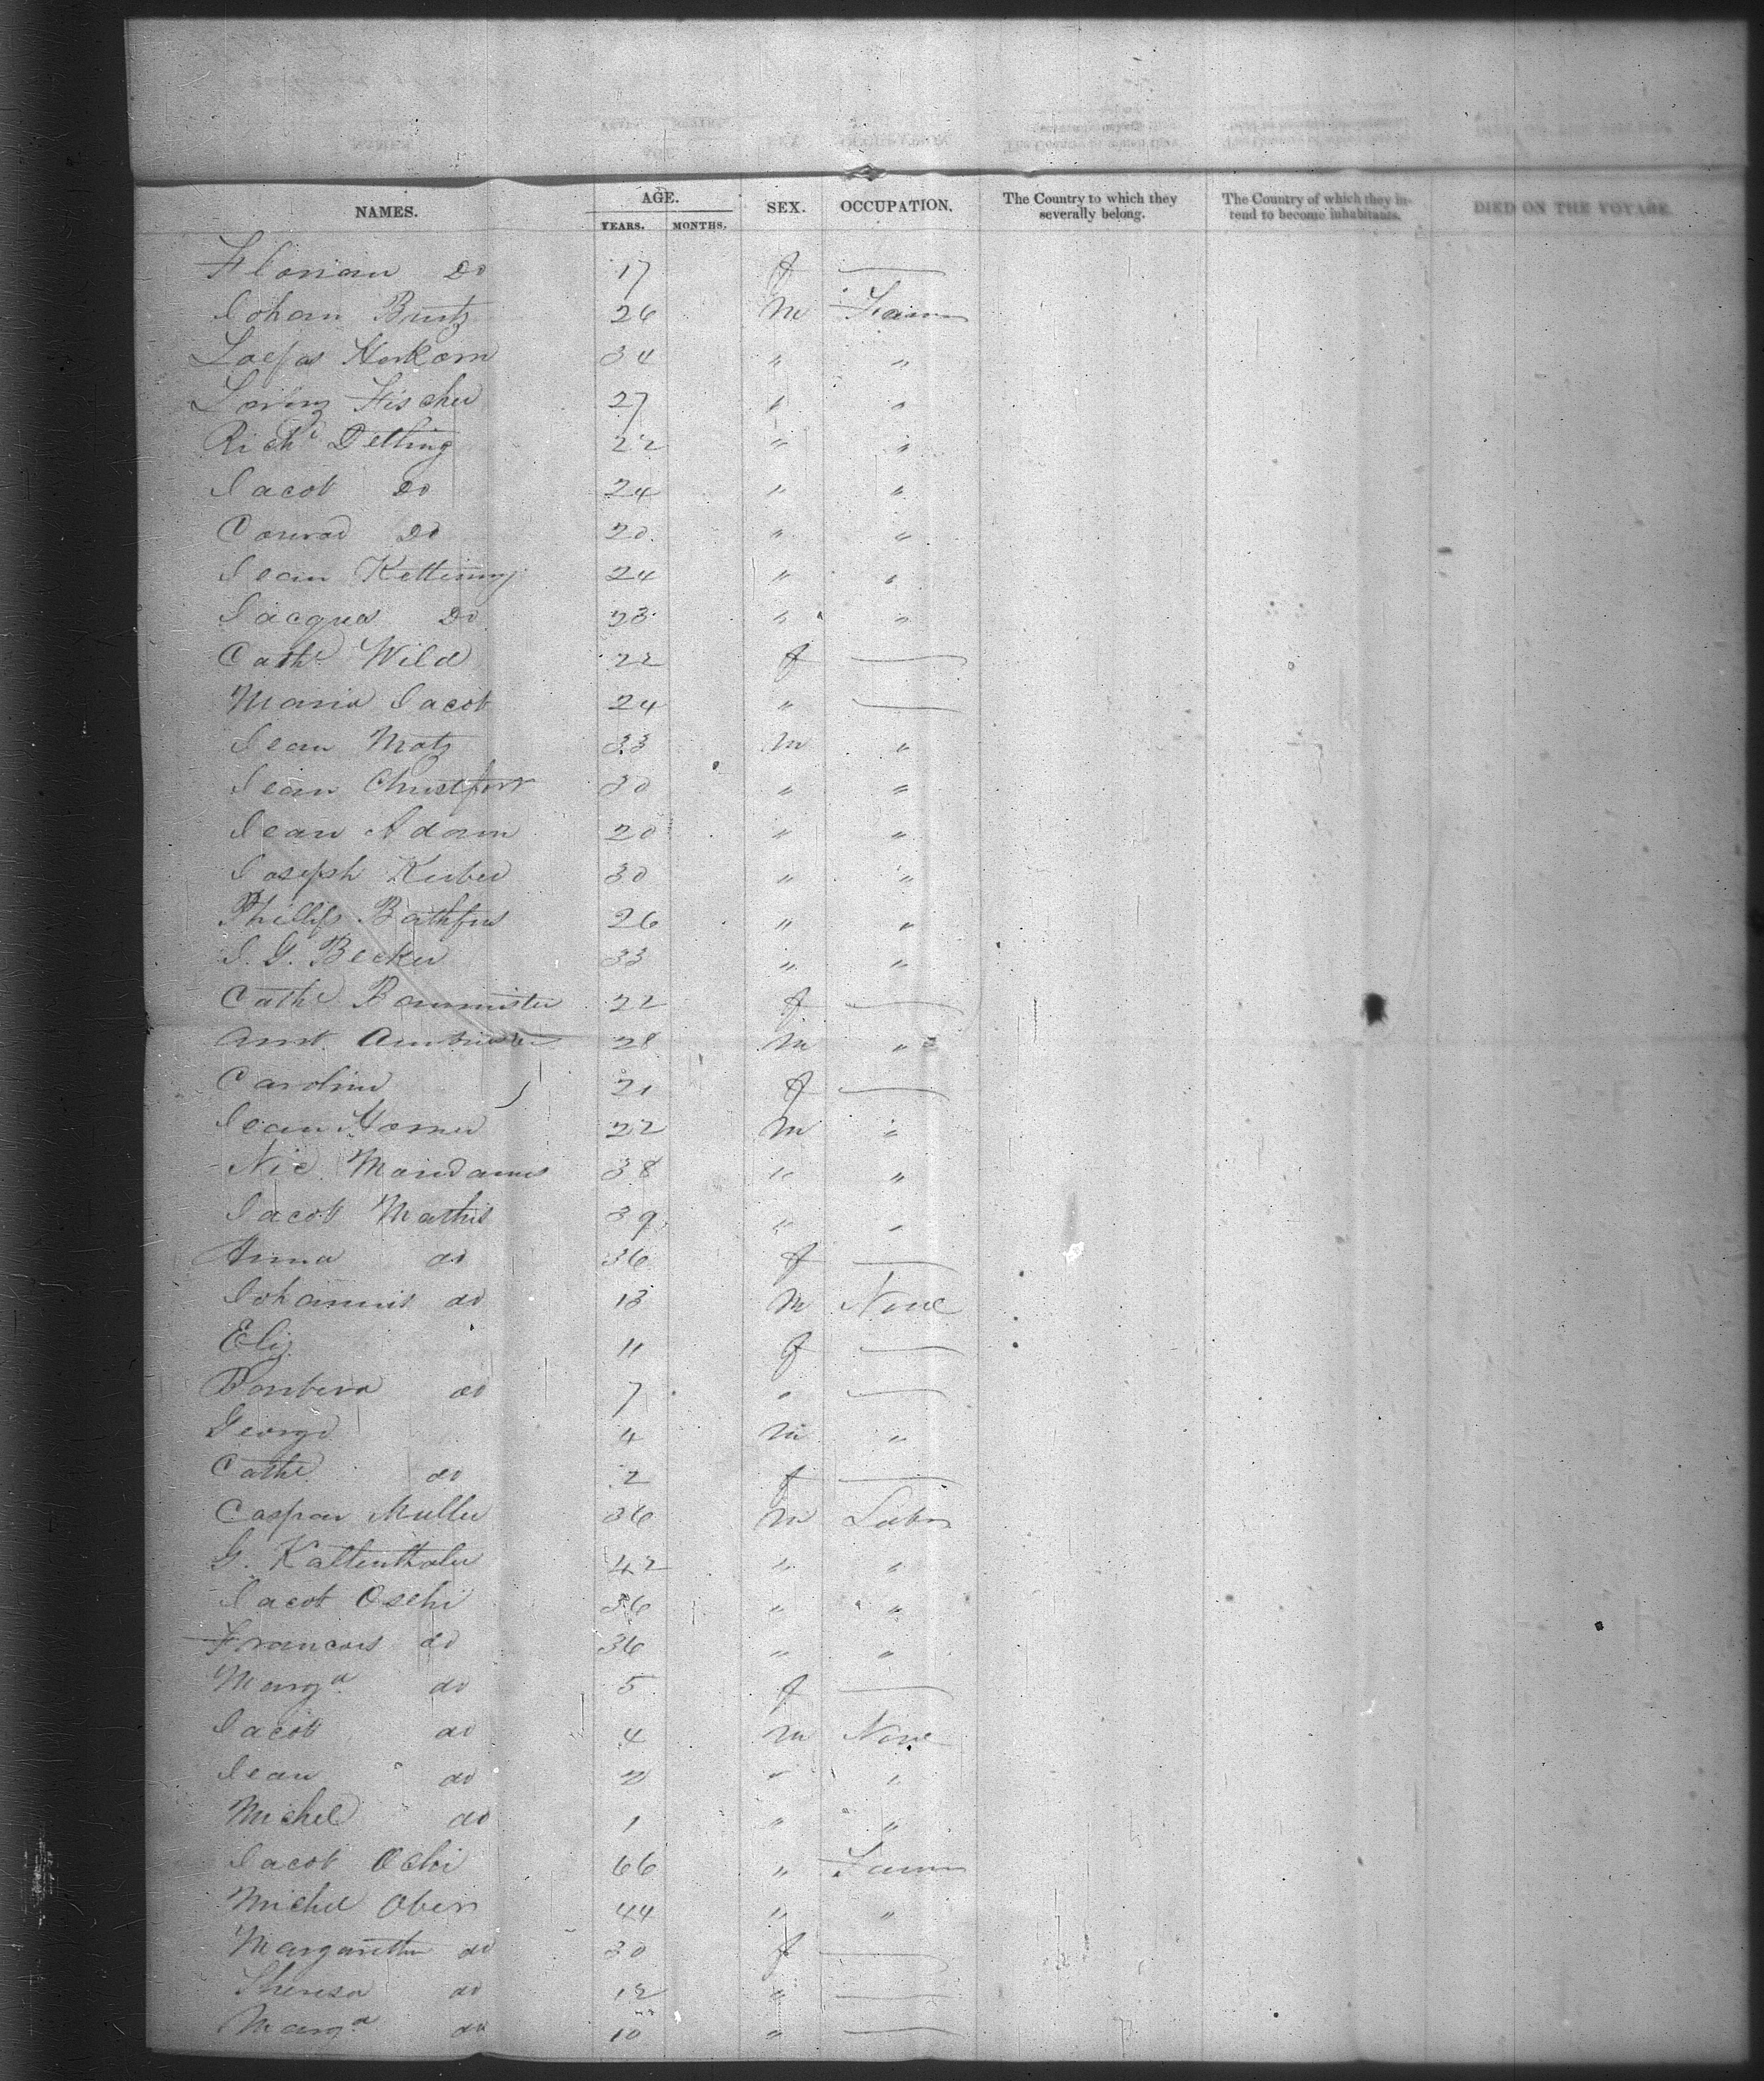 NAMES. AGE. YEARS. MONTHS. SEX. OCCUPATION. The Country to which they severally belong. The Country of which they intend to become inhabitants. DIED ON THE VOYAGE.
Florian Do 17 f —
Johan Bintz 26 m Farm
34 " "
Lorinz Fischer 27 " "
Richd Detling 22 " "
Jacob Do 24 " "
Conrad Do 20 " "
Jean Kettinny 24 " "
Jacques Do 23 " "
Cathe Wild 22 f —
Maria Jacob 24 " —
Jean Motz 33 m "
Jean Christfort 30 " "
Jean Adam 20 " "
Joseph Kerber 30 " "
Phillip Bathfus 26 " "
J. G. Becker 33 " "
Cathe Bammister 22 f —
28 m "
Caroline 21 f —
Jean Horner 22 m "
Nic Mandames 38 " "
Jacob Mathis 39 " "
Anna do 36 f —
Johannis do 13 m None
Eliz 11 f —
Barbera do 7 " —
George 4 m "
Cathe do 2 f —
Caspar Muller 36 m Labr
G. Kaltenthaler 42 " "
Jacob Oschi 36 " "
Francois do 36 " "
Marga do 5 f —
Jacob do 4 m None
Jean do 2 " "
Michel do 1 " "
Jacob Ochi 66 " Farm
Michel Ober 44 " "
Margaretha do 30 f —
Theresa do 12 " —
Marga do 10 " —